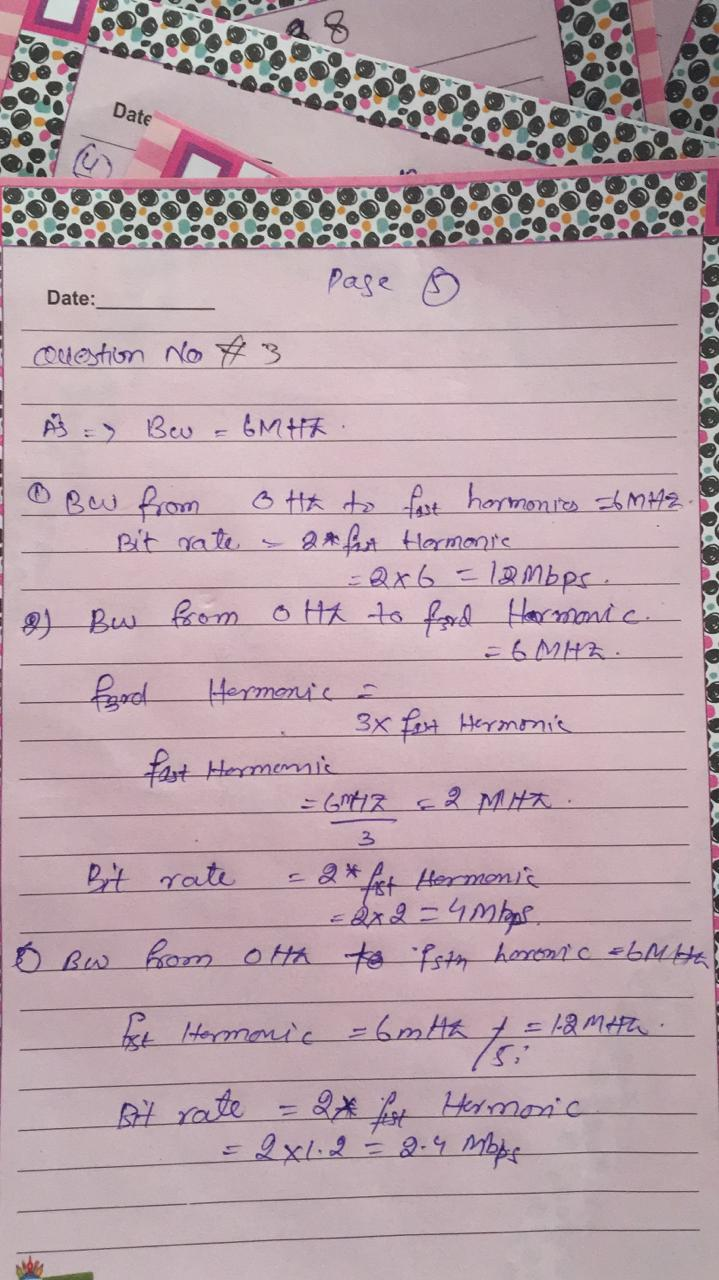 a 8
Date
(4)
Date:
Page (5)
Question No # 3
As => BW = 6MHz.
(1) BW from 0 Hz to f1st harmonics = 6MHz.
Bit rate = 2*f1st Harmonic
= 2x6 = 12Mbps.
2) BW from 0 Hz to f3rd Harmonic.
= 6 MHz.
f3rd Harmonic =
3x f1st Harmonic
f1st Harmonic
= 6MHz = 2 MHz.
3
Bit rate = 2* f1st Harmonic
= 2x2 = 4Mbps.
BW from 0Hz to f5th haronic = 6MHz
f1st Harmonic = 6mHz / 5 = 1.2MHz.
Bit rate = 2* f1st Harmonic
= 2x1.2 = 2.4 Mbps